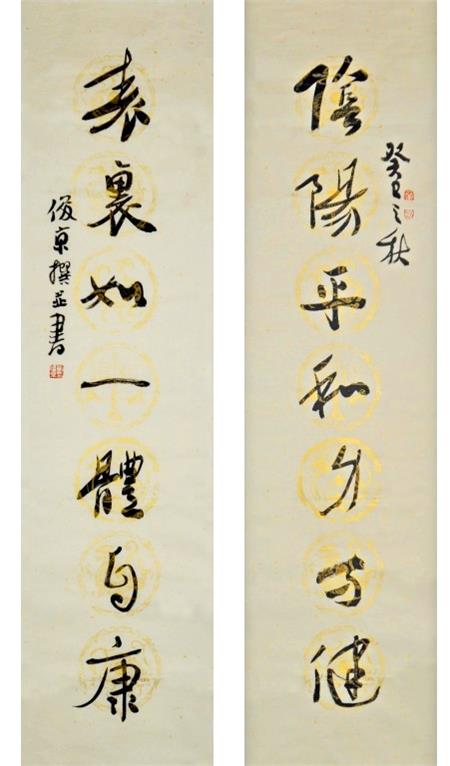 癸巳之秋
陰陽平和身方健
表裏如一體自康
俊京撰並書